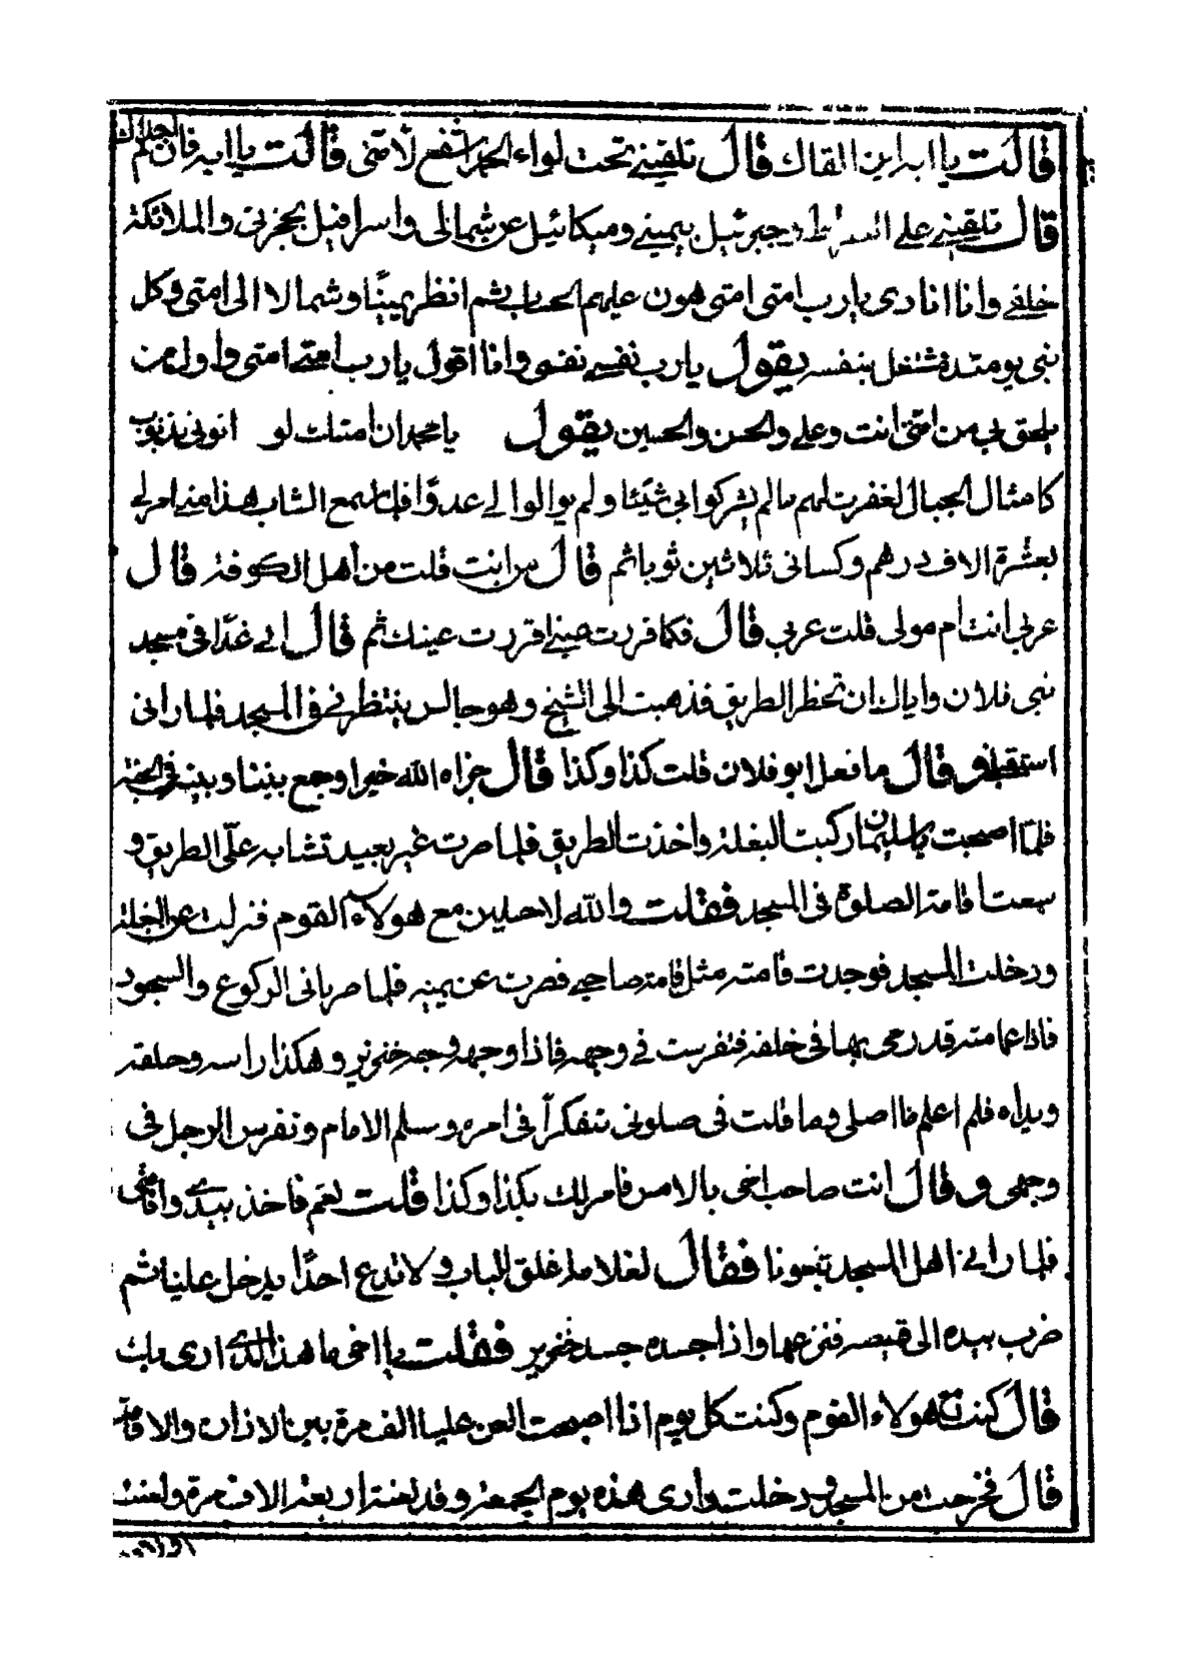 قالت يا ابه اين القاك قال تلقيني تحت لواء الحمد اشفع لامتي قالت يا ابه فان لم اجدك
قال تلقيني على الصراط وجبرئيل بيميني وميكائيل عن شمالي واسرافيل بحجزتي والملائكة
خلفي وانا انادي يا رب امتي امتي هون عليهم الحساب ثم انظر يمينًا وشمالا الى امتي وكل
نبي يومئذ مشتغل بنفسه يقول يا رب نفسي نفسي وانا اقول يا رب امتي امتي واول من
يلحق بي من امتي انت وعلي والحسن والحسين يقول يا محمد ان امتك لو اتوني بذنوب
كامثال الجبال لغفرت لهم ما لم يشركوا بي شيئا ولم يوالوا لي عدوًّا فلما سمع الشاب هذا مني امر لي
بعشرة الاف درهم وكساني ثلاثين ثوبا ثم قال من انت قلت من اهل الكوفة قال
عربي انت ام مولى قلت عربي قال فكما قررت عيني اقررت عينك ثم قال ائتني غدًا في مسجد
بني فلان واياك ان تخطى الطريق فذهبت الى الشيخ وهو جالس ينتظرني في المسجد فلما راني
استقبلني وقال ما فعل ابو فلان قلت كذا وكذا قال جزاه الله خيرا وجمع بيننا وبينه في الجنة
فلمّا اصبحت يا سليمان ركبت البغلة واخذت الطريق فلما صرت غير بعيد تشابه علّي الطريق و
سمعت اقامة الصلوة في المسجد فقلت والله لاصلين مع هولاء القوم فنزلت عن البغلة
ودخلت المسجد فوجدت قامته مثل قامة صاحبي فصرت عن يمينه فلما صرنا في الركوع والسجود
فاذا عمامته قد رمى بها في خلفه فتفرست في وجهه فاذا وجهه وجه خنزير وهكذا راسه وحلقه
ويداه فلم اعلم ما اصلي وما قلت في صلوتي تتفكرًا في امره وسلم الامام وتفرس الرجل في
وجهي وقال انت صاحب اخي بالامس فامر لك بكذا وكذا قلت نعم فاخذ بيدي واقامني
فلما راني اهل المسجد تبعونا فقال لغلامه اغلق الباب ولا تدع احدًا يدخل علينا ثم
ضرب بيده الى قميصه فنزعها واذا جسده جسد خنزير فقلت يا اخي ما هذا الذي ارى بك
قال كنت هولاء القوم وكنت كل يوم اذا اصبحت العن عليا الف مرة بين الاذان والاقامة
قال فخرجت من المسجد ودخلت داري هذه يوم الجمعة وقد لعنته اربعة الاف مرة ولعنت